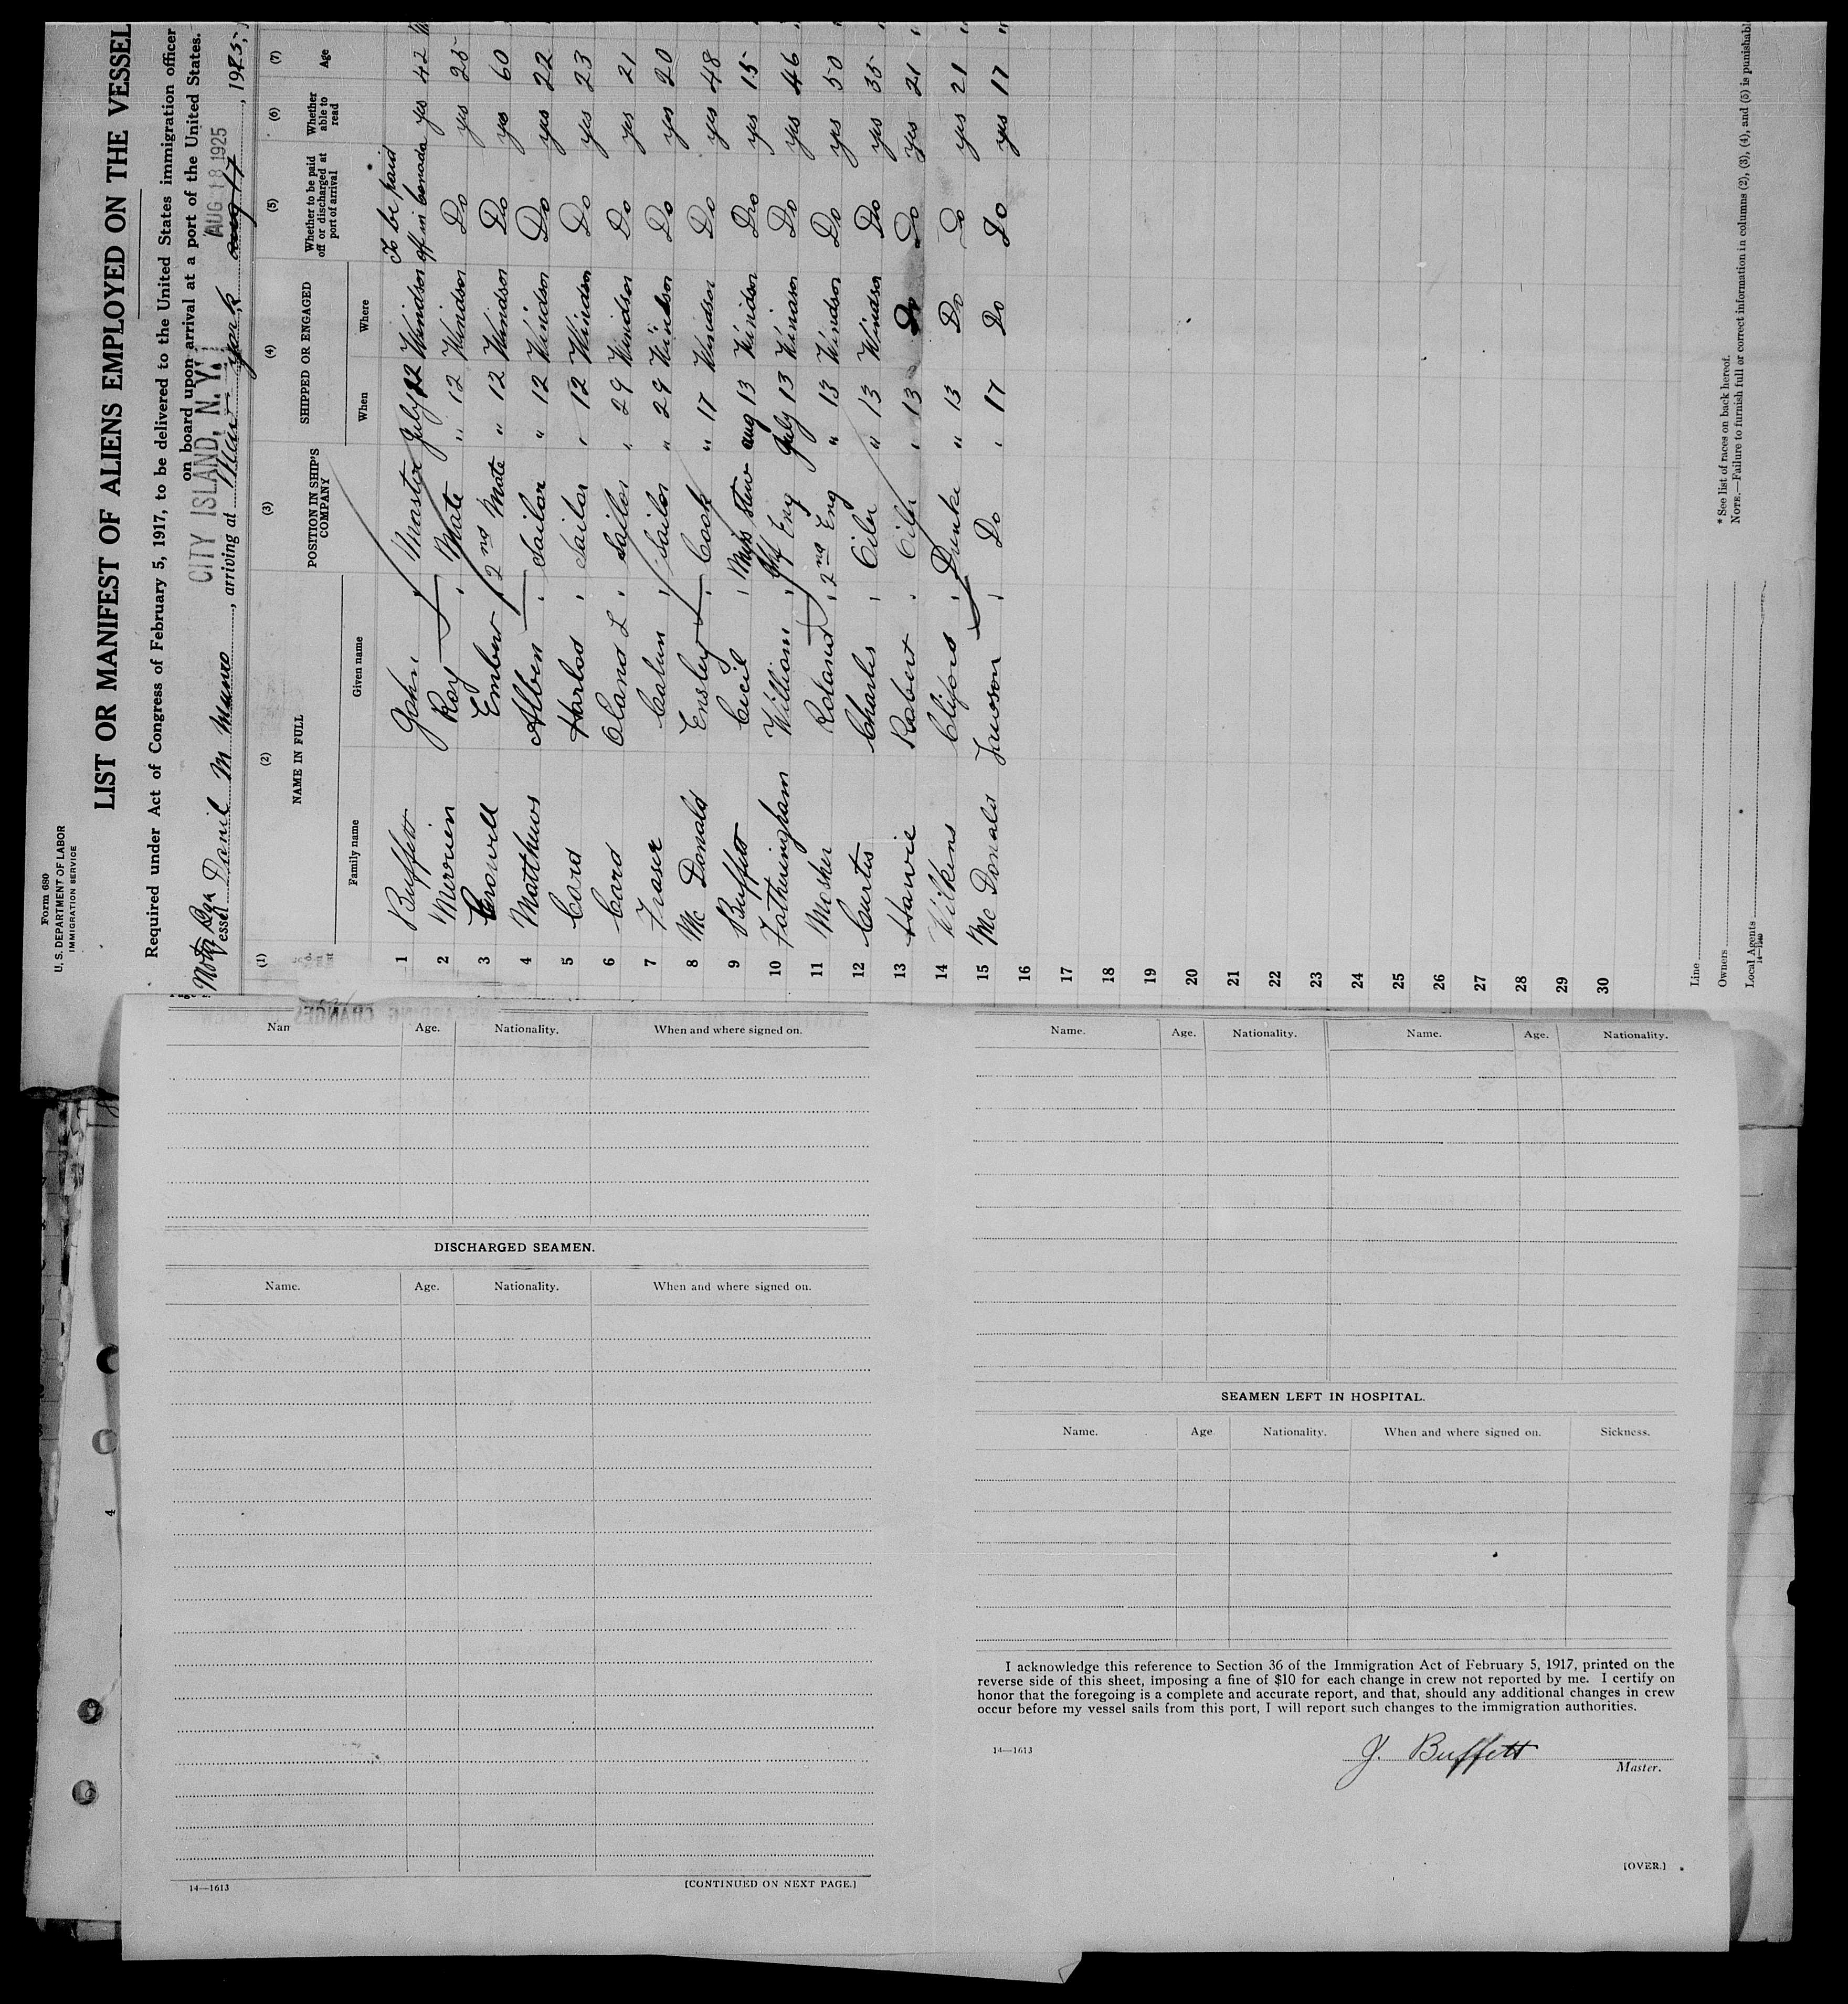 Form 680
U. S. DEPARTMENT OF LABOR
IMMIGRATION SERVICE
LIST OR MANIFEST OF ALIENS EMPLOYED ON THE VESSEL
Required under Act of Congress of February 5, 1917, to be delivered to the United States immigration officer
on board upon arrival at a port of the United States.
CITY ISLAND, N. Y. AUG 18 1925
Vessel Danil M Munro, arriving at York Aug 17, 1925,
(1) (2) (3) (4) (5) (6) (7)
NAME IN FULL POSITION IN SHIP'S COMPANY SHIPPED OR ENGAGED Whether to be paid off or discharged at port of arrival Whether able to read Age
Family name Given name When Where
To be paid
1 Buffett John Master July 12 Windsor off in Canada yes 42
2 Merrien Roy " Mate " 12 Windsor Do yes 25
3 Crowell Embert 2nd Mate " 12 Windsor Do yes 60
4 Matthews Alben " Sailor " 12 Windsor Do yes 22
5 Card Harlod " Sailor " 12 Windson Do yes 23
6 Card Oland L " Sailor " 29 Windsor Do yes 21
7 Fraser Calum " Sailor " 29 Windsor Do yes 20
8 Mc Donald Ensley " Cook " 17 Windsor Do yes 48
9 Buffett Cecil " Mess Stew Aug 13 Windsor Do yes 15
10 Fotheringham William " Chf Eng July 13 Windsor Do yes 46
11 Mosher Roland " 2nd Eng " 13 Windsor Do yes 50
12 Curtis Charles " Oiler " 13 Windsor Do yes 35
13 Robert " Oiler " 13 Do Do yes 21 "
14 Wilkens Cliford " Dunke " 13 Do Do yes 21 "
15 Mc Donald Lawson " Do " 17 Do Do yes 17 "
16
17
18
19
20
21
22
23
24
25
26
27
28
29
30
Line
Owners
Local Agents
14—1240
* See list of races on back hereof.
NOTE.—Failure to furnish full or correct information in columns (2), (3), (4), and (5) is punishabl
Nan Age. Nationality. When and where signed on.
DISCHARGED SEAMEN.
Name. Age. Nationality. When and where signed on.
14—1613 [CONTINUED ON NEXT PAGE.]
4
Name. Age. Nationality. Name. Age. Nationality.
SEAMEN LEFT IN HOSPITAL.
Name. Age Nationality. When and where signed on. Sickness.
I acknowledge this reference to Section 36 of the Immigration Act of February 5, 1917, printed on the
reverse side of this sheet, imposing a fine of $10 for each change in crew not reported by me. I certify on
honor that the foregoing is a complete and accurate report, and that, should any additional changes in crew
occur before my vessel sails from this port, I will report such changes to the immigration authorities.
14—1613
J. Buffett
Master.
[OVER.]